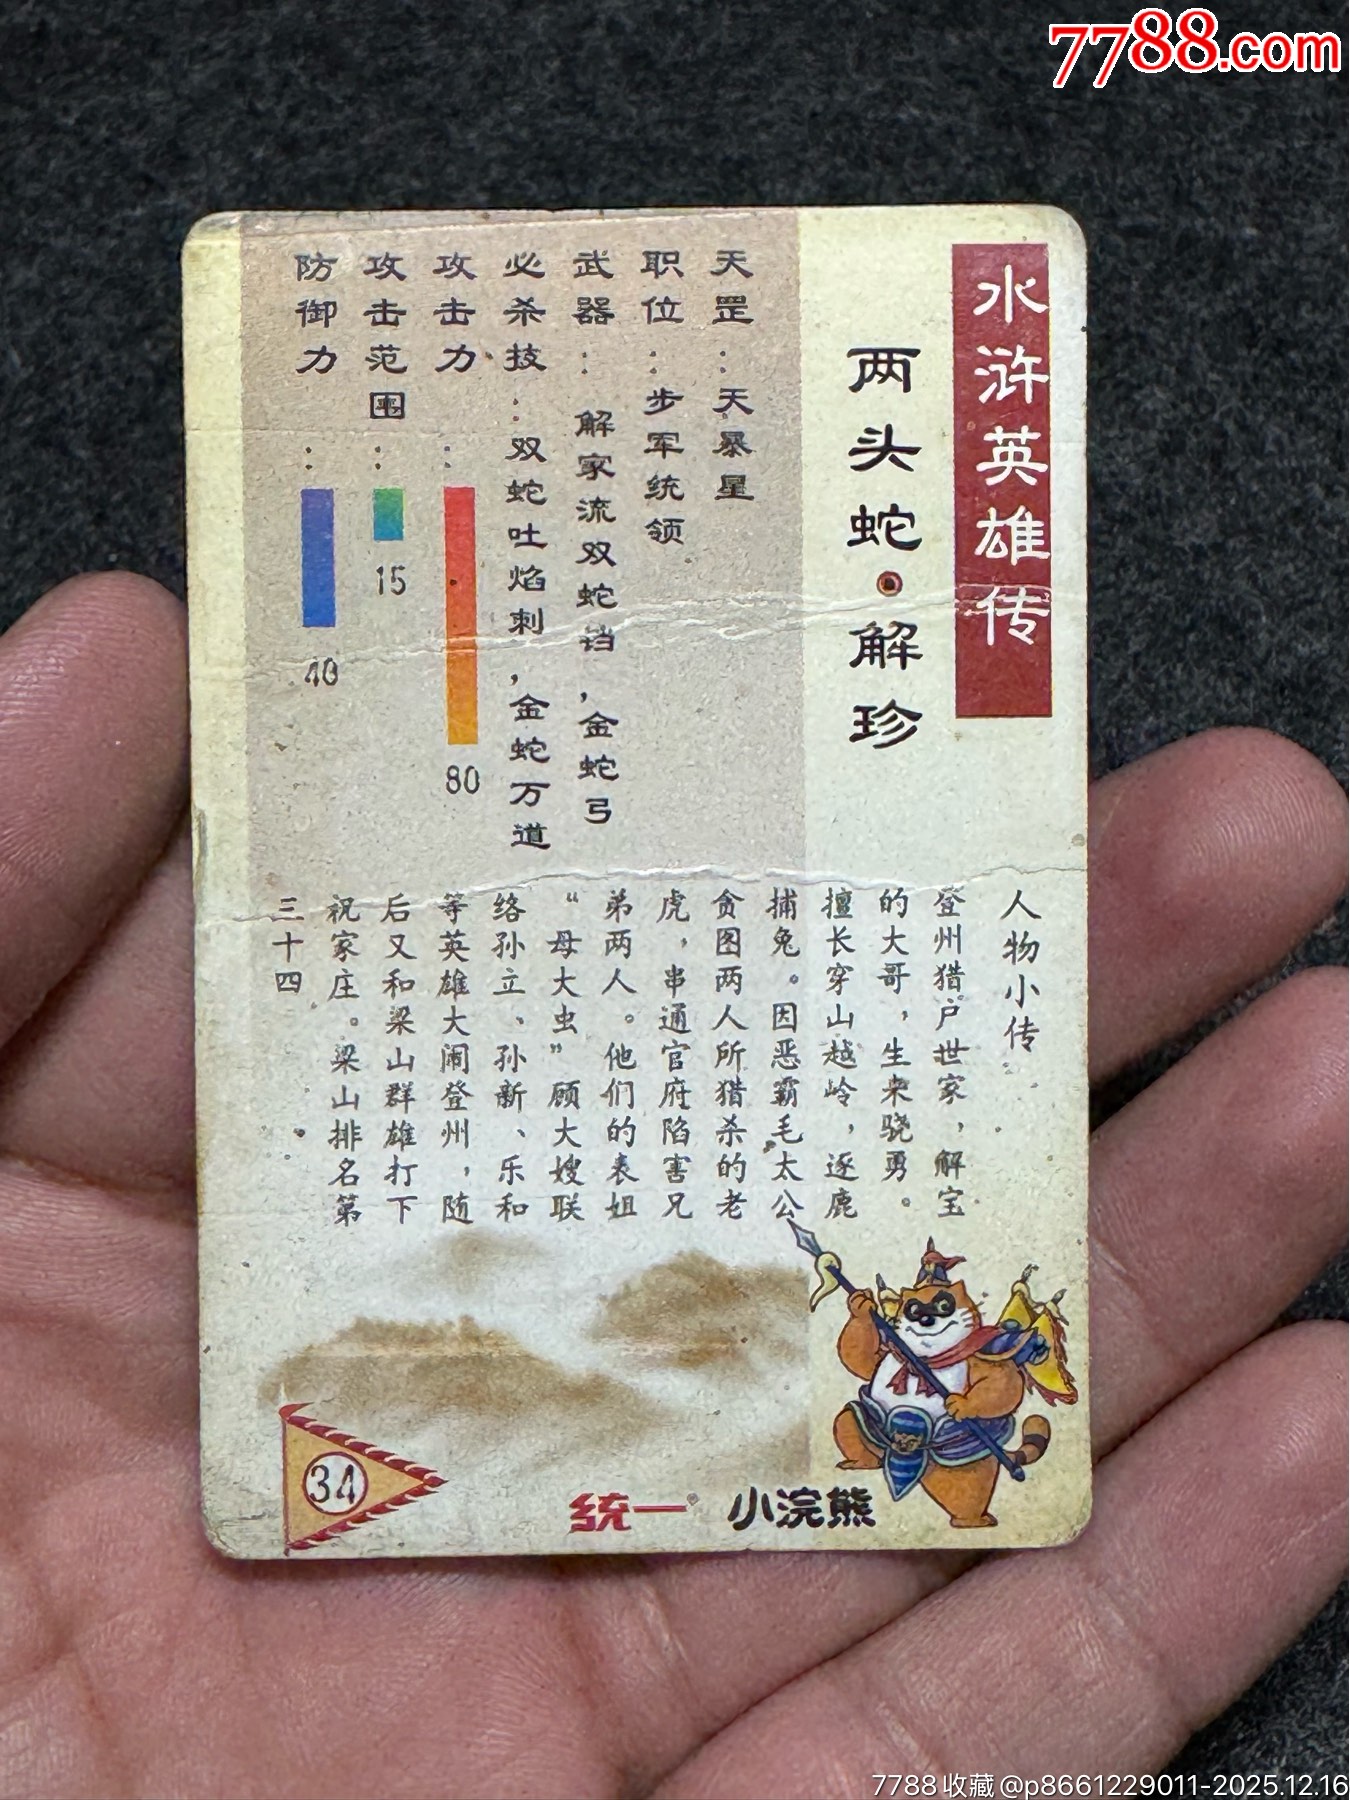 7788.com
水浒英雄传
两头蛇·解珍
天罡：天暴星
职位：步军统领
武器：解家流双蛇铛，金蛇弓
必杀技：双蛇吐焰刺，金蛇万道
攻击力：80
攻击范围：15
防御力：40
人物小传
登州猎户世家，解宝
的大哥，生来骁勇。
擅长穿山越岭，逐鹿
捕兔。因恶霸毛太公
贪图两人所猎杀的老
虎，串通官府陷害兄
弟两人。他们的表姐
“母大虫”顾大嫂联
络孙立、孙新、乐和
等英雄大闹登州，随
后又和梁山群雄打下
祝家庄。梁山排名第
三十四
34
统一 小浣熊
7788收藏@p8661229011-2025.12.16